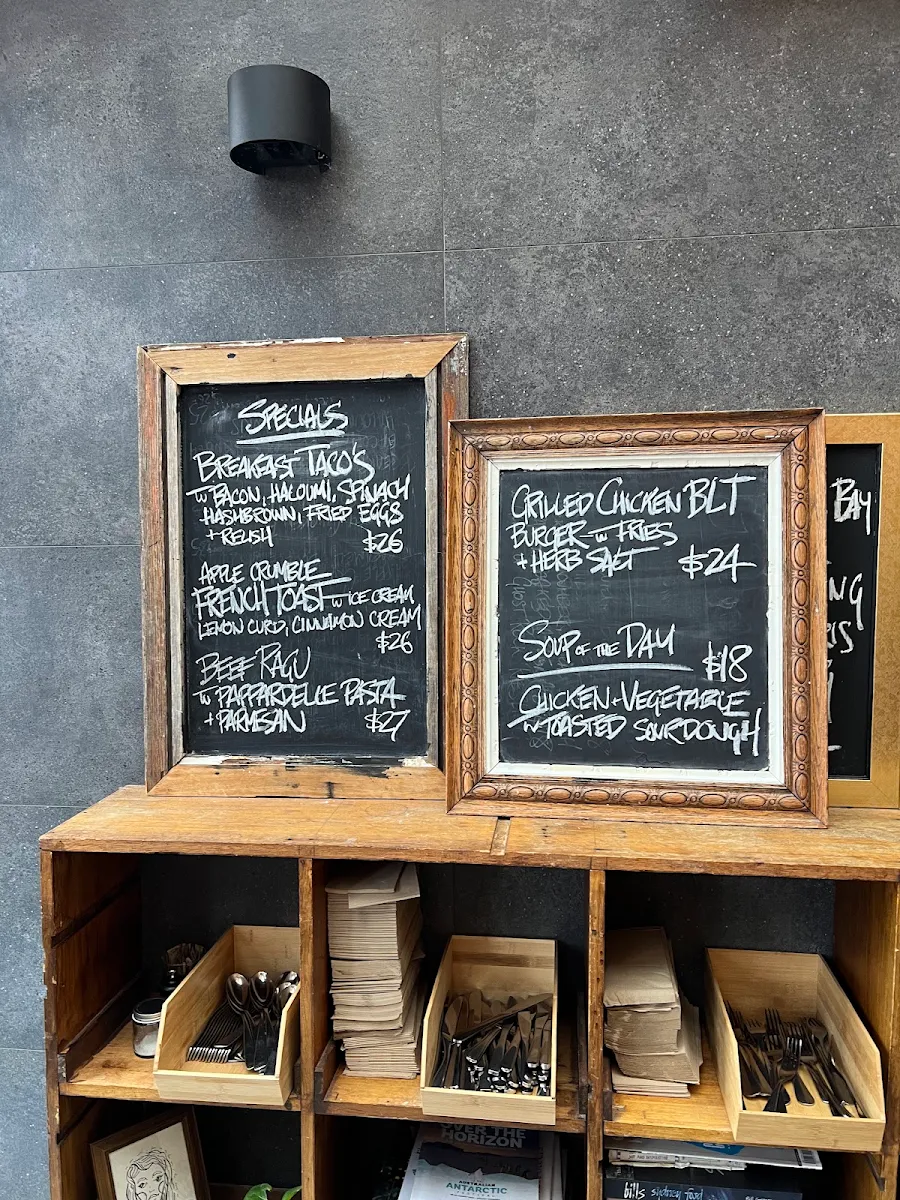 SPECIALS
BREAKFAST TACO'S
w BACON, HALOUMI, SPINACH
HASHBROWN, FRIED EGGS
+ RELISH $26
APPLE CRUMBLE
FRENCH TOAST w ICE CREAM
LEMON CURD, CINNAMON CREAM
$26
BEEF RAGU
w PAPPARDELLE PASTA
+ PARMESAN $27
GRILLED CHICKEN BLT
BURGER w FRIES
+ HERB SALT $24
SOUP OF THE DAY $18
CHICKEN + VEGETABLE
w TOASTED SOURDOUGH
BAY
OVER THE
HORIZON
AUSTRALIAN
ANTARCTIC
bills sydney food